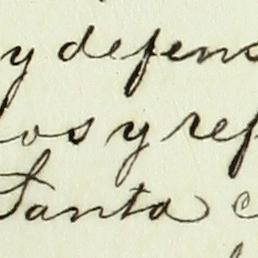 y defens
los y ref
Santa c